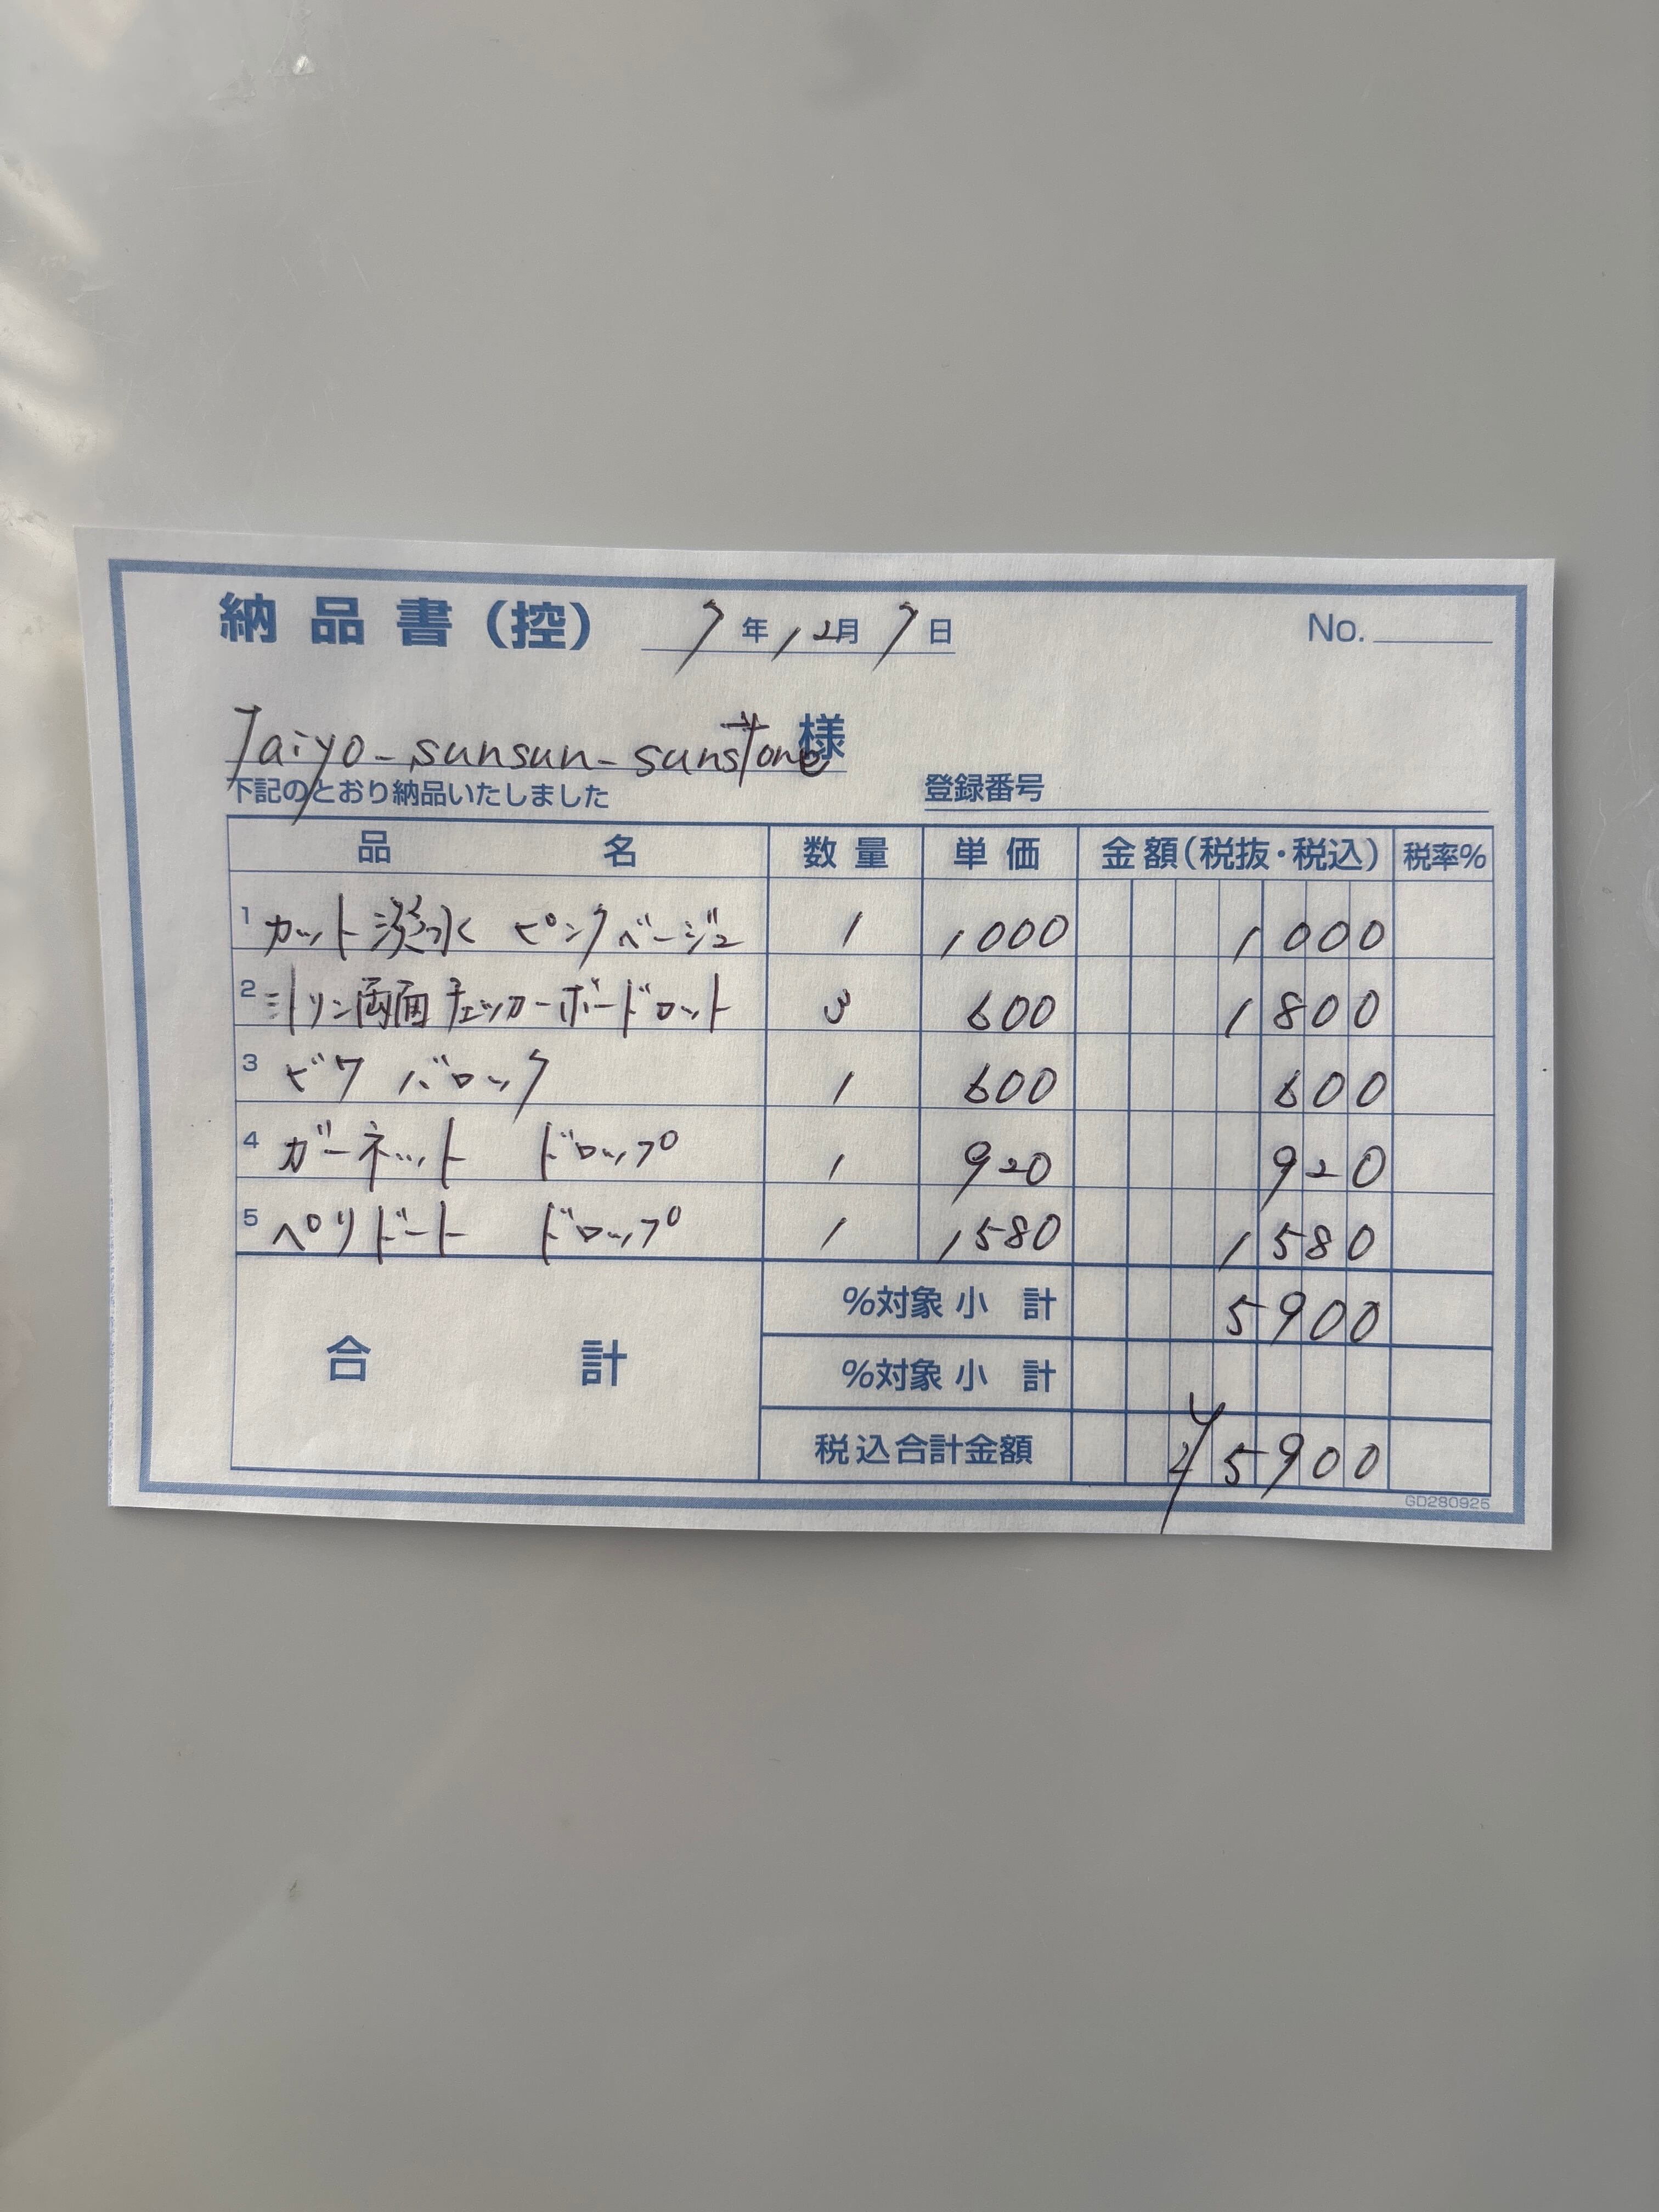 納品書(控) 7年12月7日 No.
Taiyo-sunsun-sunstone様
下記のとおり納品いたしました 登録番号
品名 数量 単価 金額(税抜・税込) 税率%
1 カット淡水 ピンクベージュ 1 1000 1000
2 シトリン両面チェッカーボードロット 3 600 1800
3 ビワ バロック 1 600 600
4 ガーネット ドロップ 1 920 920
5 ペリドート ドロップ 1 1580 1580
合計 %対象小計 5900
%対象小計
税込合計金額 ¥5900
GD280925